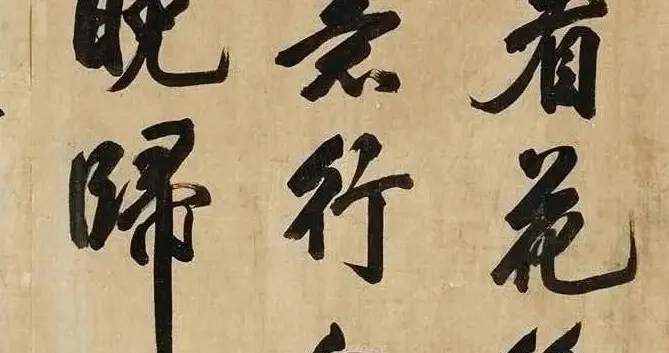 看花
意行
晚歸